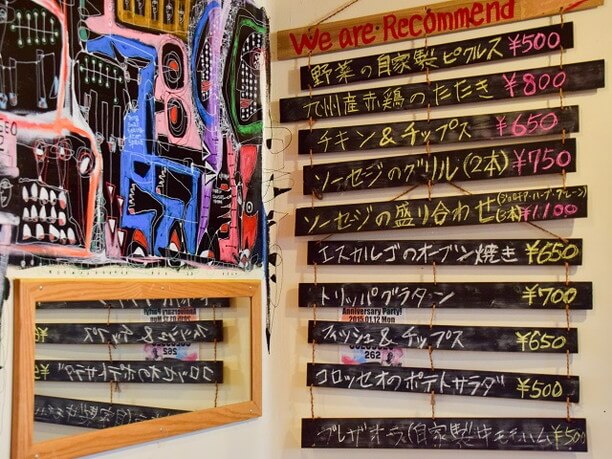 We are Recommend
野菜の自家製ピクルス ¥500
九州産赤鶏のたたき ¥800
チキン&チップス ¥650
ソーセジのグリル(2本) ¥750
ソーセジの盛り合わせ(3本) ¥1,100
エスカルゴのオーブン焼き ¥650
トリッパグラタン ¥700
Anniversary Party!
2015.01.12 Mon
フィッシュ&チップス ¥650
262
コロッセオのポテトサラダ ¥500
(自家製 ハム ¥500